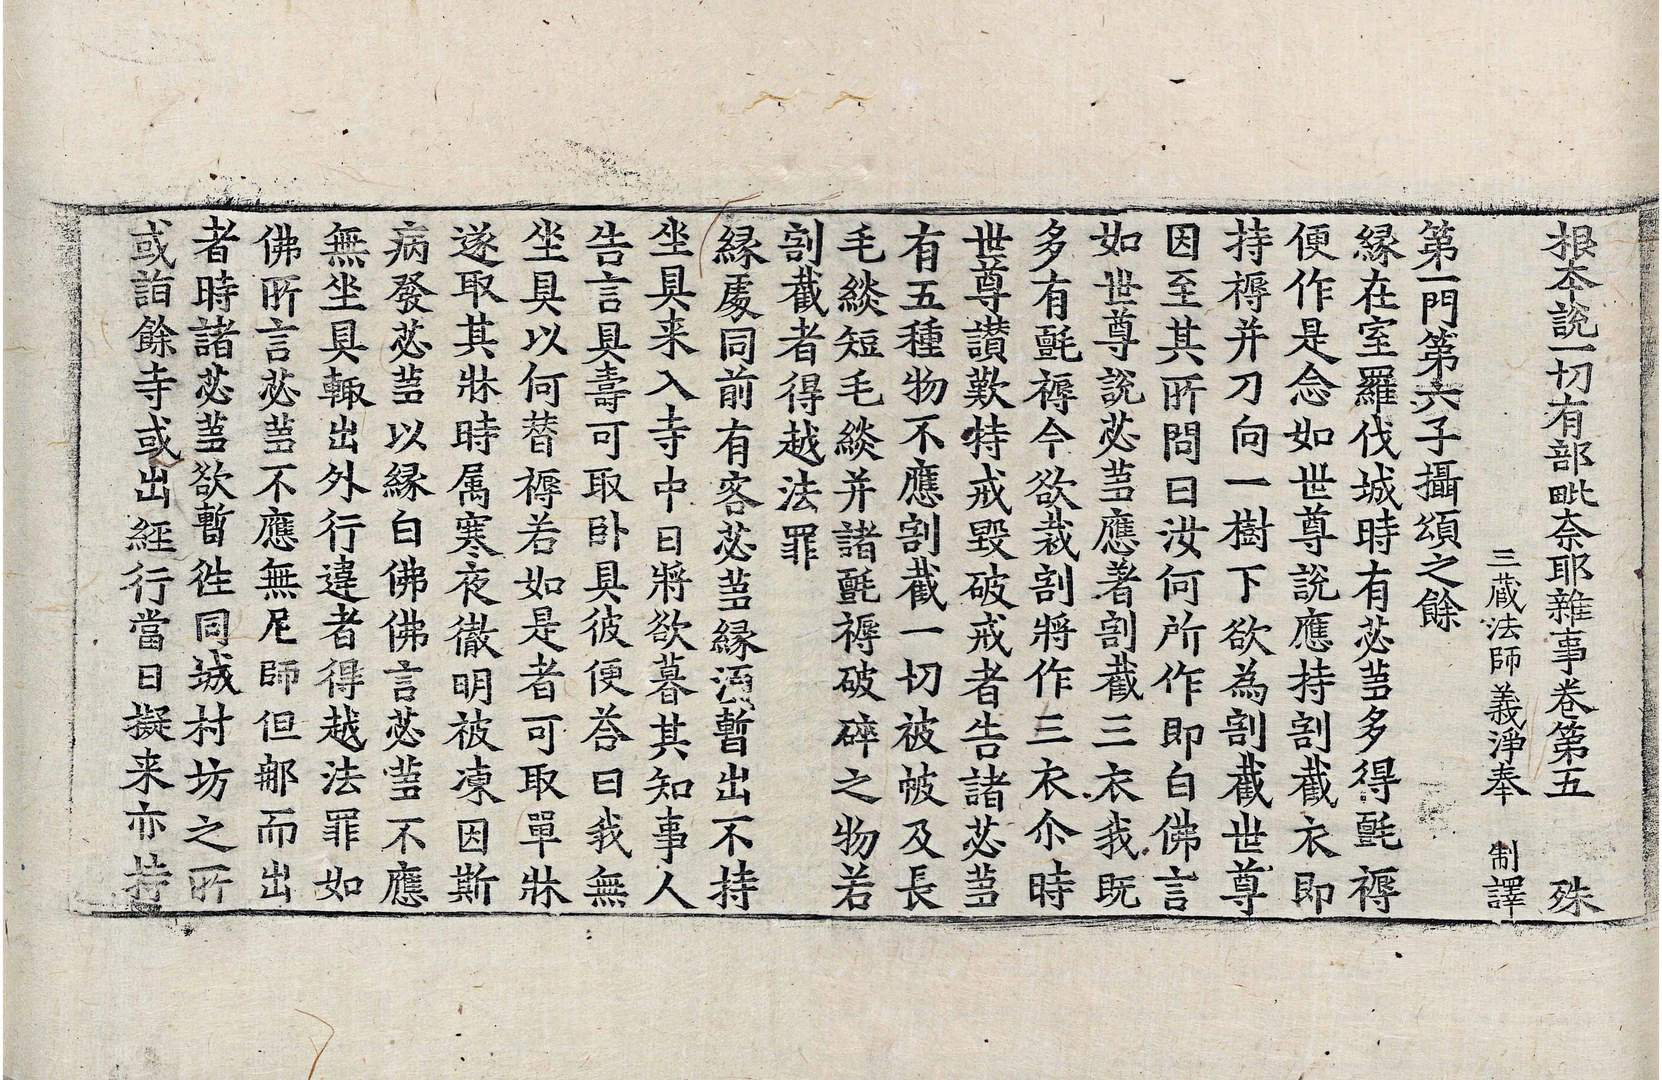 根本說一切有部毗奈耶雜事卷第五 殊
三蔵法師義淨奉 制譯
第一門第六子攝頌之餘
縁在室羅伐城時有苾芻多得㲲褥
便作是念如世尊說應持割截衣即
持褥并刀向一樹下欲為割截世尊
因至其所問曰汝何所作即白佛言
如世尊說苾芻應著割截三衣我既
多有㲲褥今欲裁割將作三衣尒時
世尊讃歎持戒毀破戒者告諸苾芻
有五種物不應割截一切被帔及長
毛緂短毛緂并諸㲲褥破碎之物若
割截者得越法罪
縁處同前有客苾芻縁須暫出不持
坐具来入寺中日將欲暮其知事人
告言具壽可取卧具彼便荅曰我無
坐具以何替褥若如是者可取單牀
遂取其牀時属寒夜徹明被凍因斯
病發苾芻以縁白佛佛言苾芻不應
無坐具輙出外行違者得越法罪如
佛所言苾芻不應無尼師但那而出
者時諸苾芻欲暫徃同城村坊之所
或詣餘寺或出經行當日擬来亦持